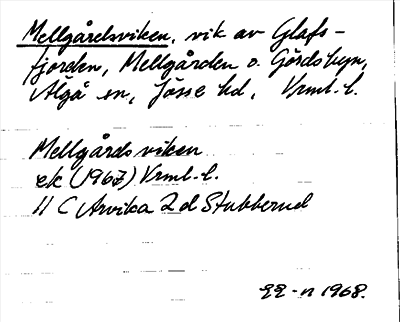 Mellgårdsviken, vik av Glafs-
fjorden, Mellgården o. Gårdsbyn,
Älgå sn, Jösse hd, Vrml. l.
Mellgårdsviken
ek (1967) Vrml. l.
11 C Arvika 2 d Stubberud
1968.